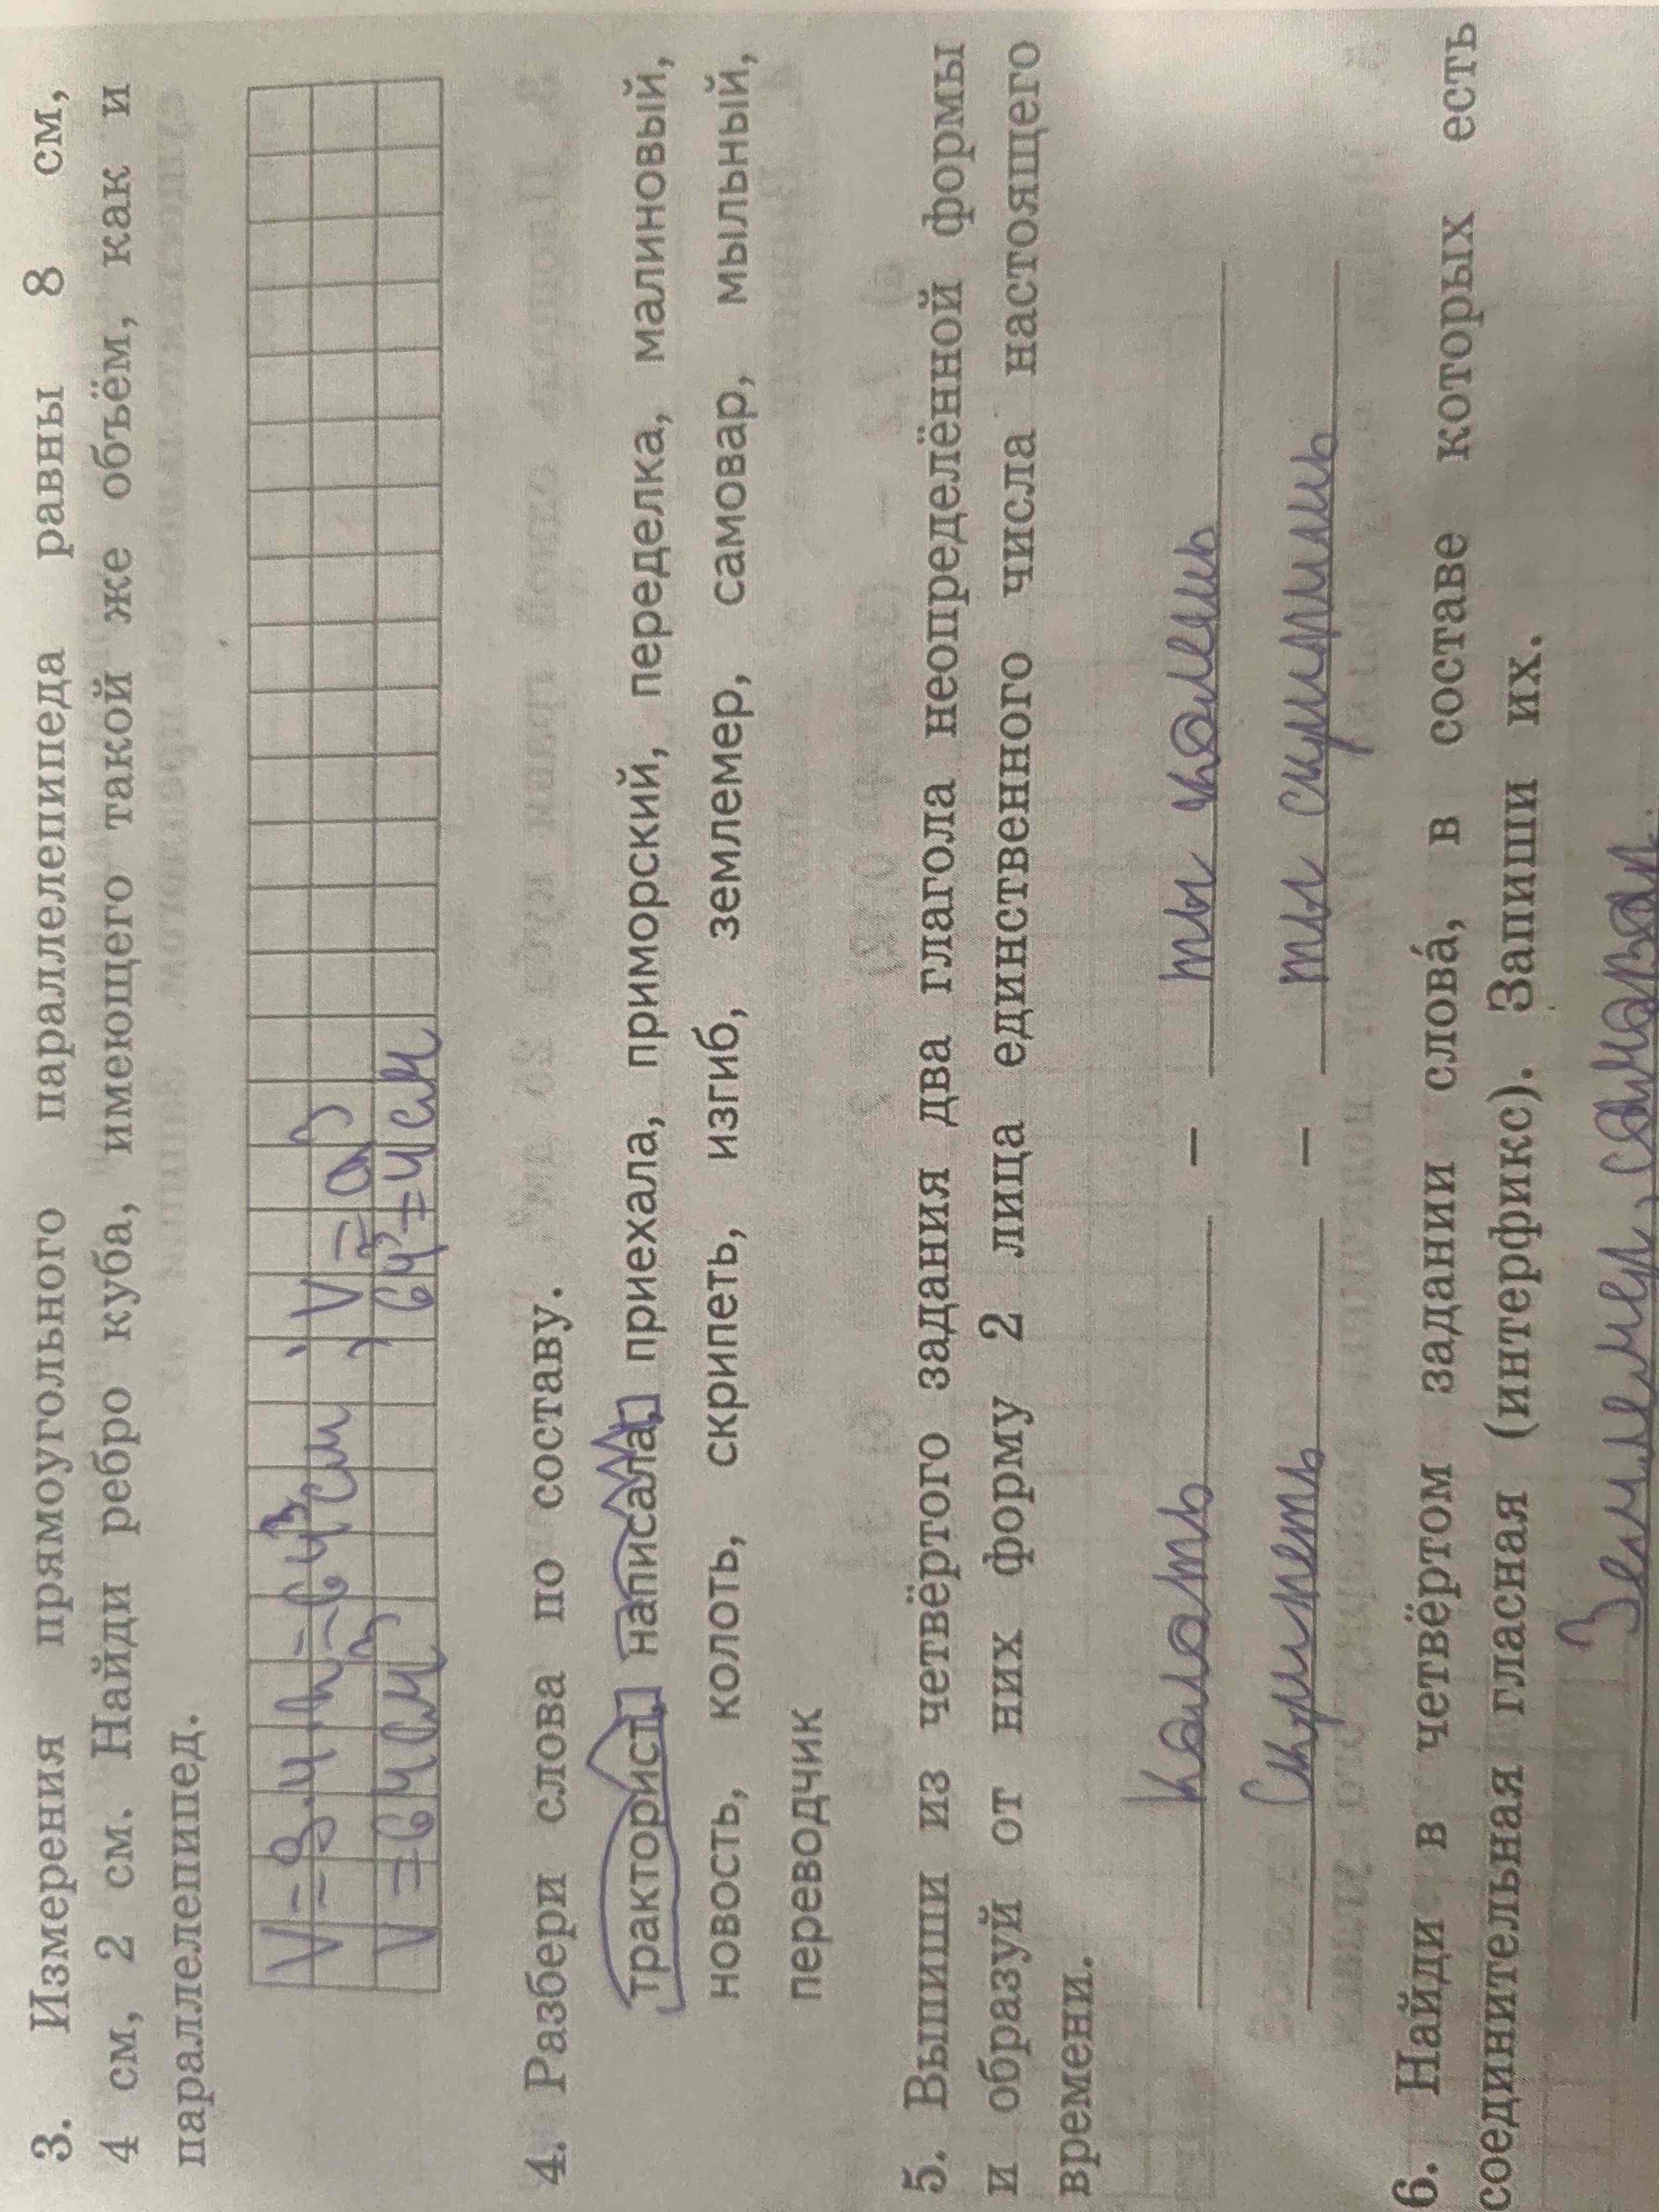 3. Измерения прямоугольного параллелепипеда равны 8 см,
4 см, 2 см. Найди ребро куба, имеющего такой же объём, как и
параллелепипед.
V = a³
V = 64 см³
64 = 4 см
4. Разбери слова по составу.
тракторист, написала, приехала, приморский, переделка, малиновый,
новость, колоть, скрипеть, изгиб, землемер, самовар, мыльный,
переводчик
5. Выпиши из четвёртого задания два глагола неопределённой формы
и образуй от них форму 2 лица единственного числа настоящего
времени.
Колоть – ты колешь
Скрипеть – ты скрипишь
6. Найди в четвёртом задании слова́, в составе которых есть
соединительная гласная (интерфикс). Запиши их.
Землемер, самовар.